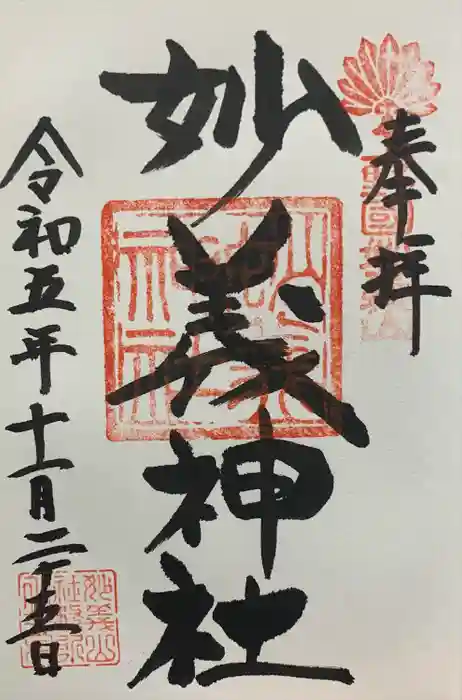 奉拝
妙義神社
令和五年十一月二十五日